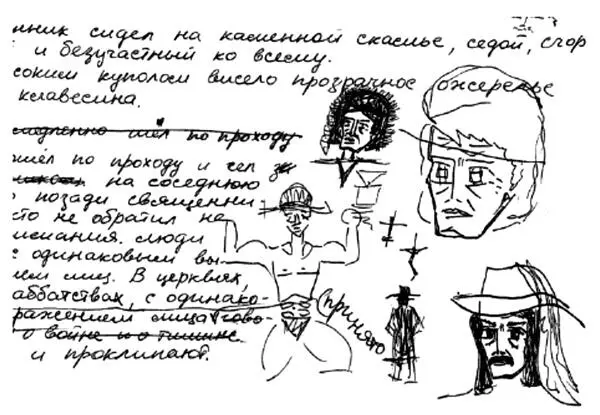 нник сидел на каменной скамье, седой, сгор
и безучастный ко всему.
соким куполом висело прозрачное ожерелье
клавесина.
медленно шёл по проходу
шёл по проходу и сел за
на соседнюю
позади священни
сто не обратил на
мания. Люди
с одинаковым вы
ем лиц. В церквях,
аббатствах, с одинако-
ражением лица гово-
о войне и о тишине
и проклинают.
(принято